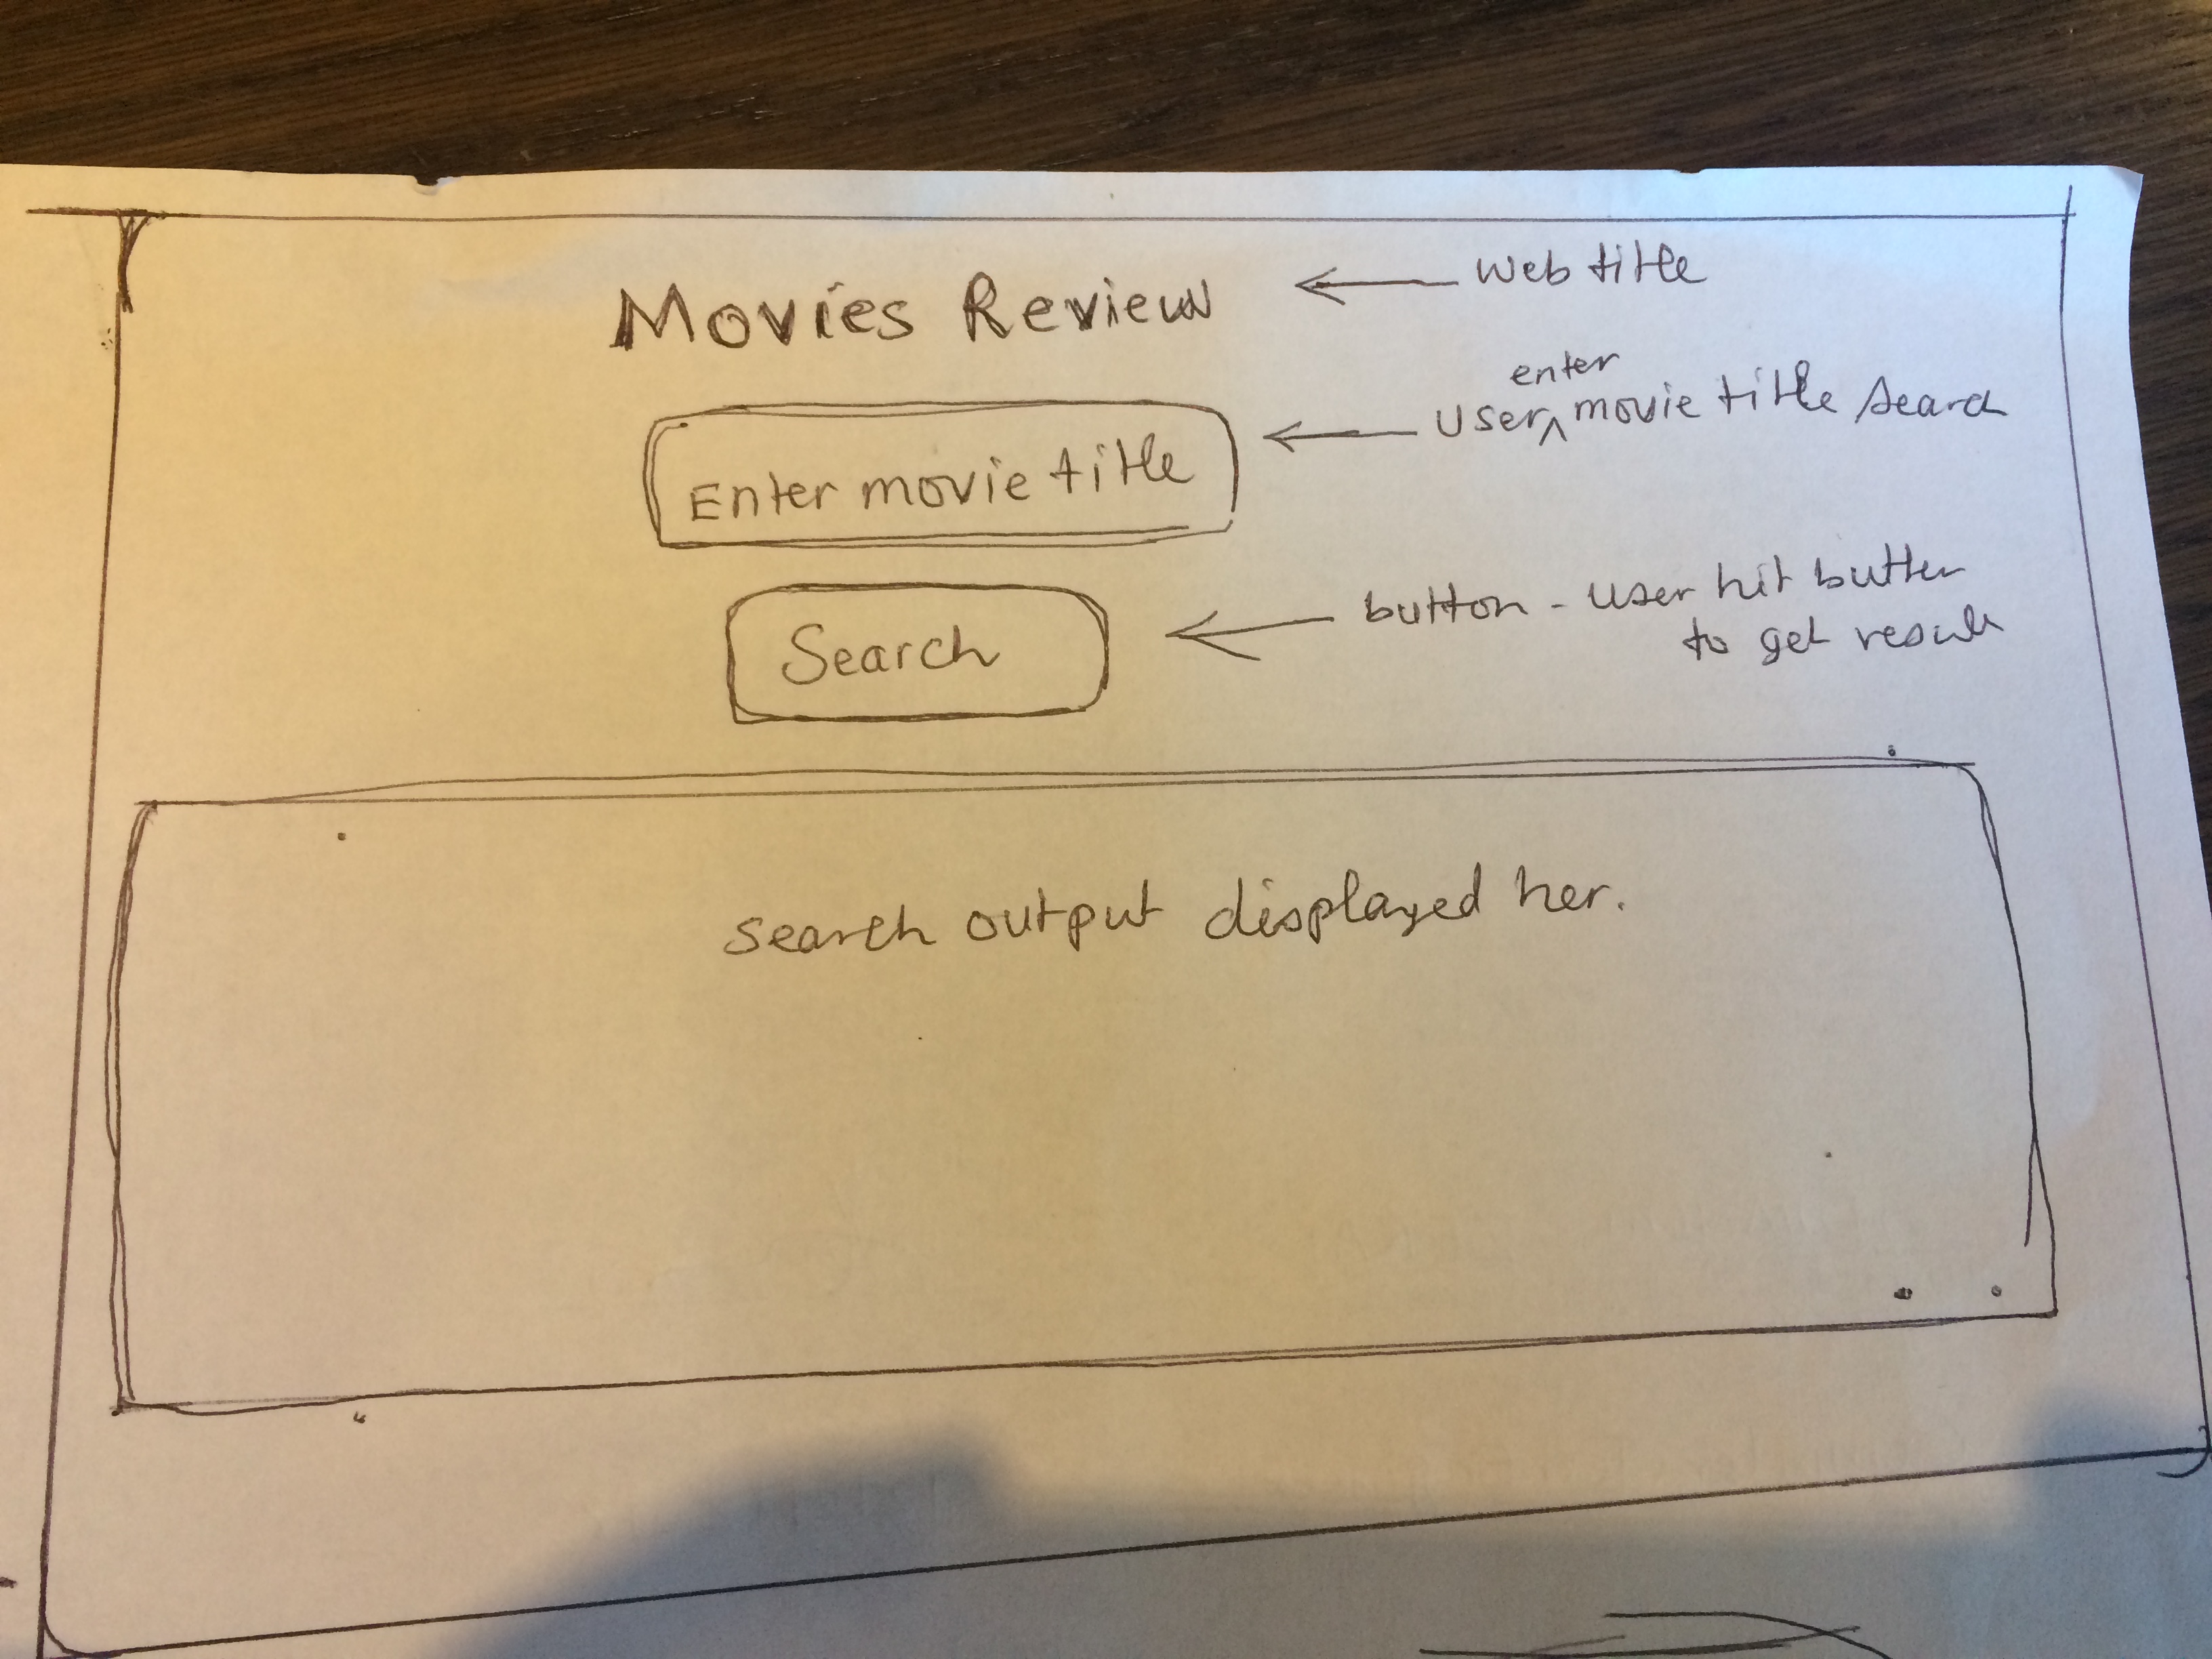 Movies Review ← web title
Enter movie title ← user enter movie title search
Search ← button - user hit button
to get result
Search output displayed her.